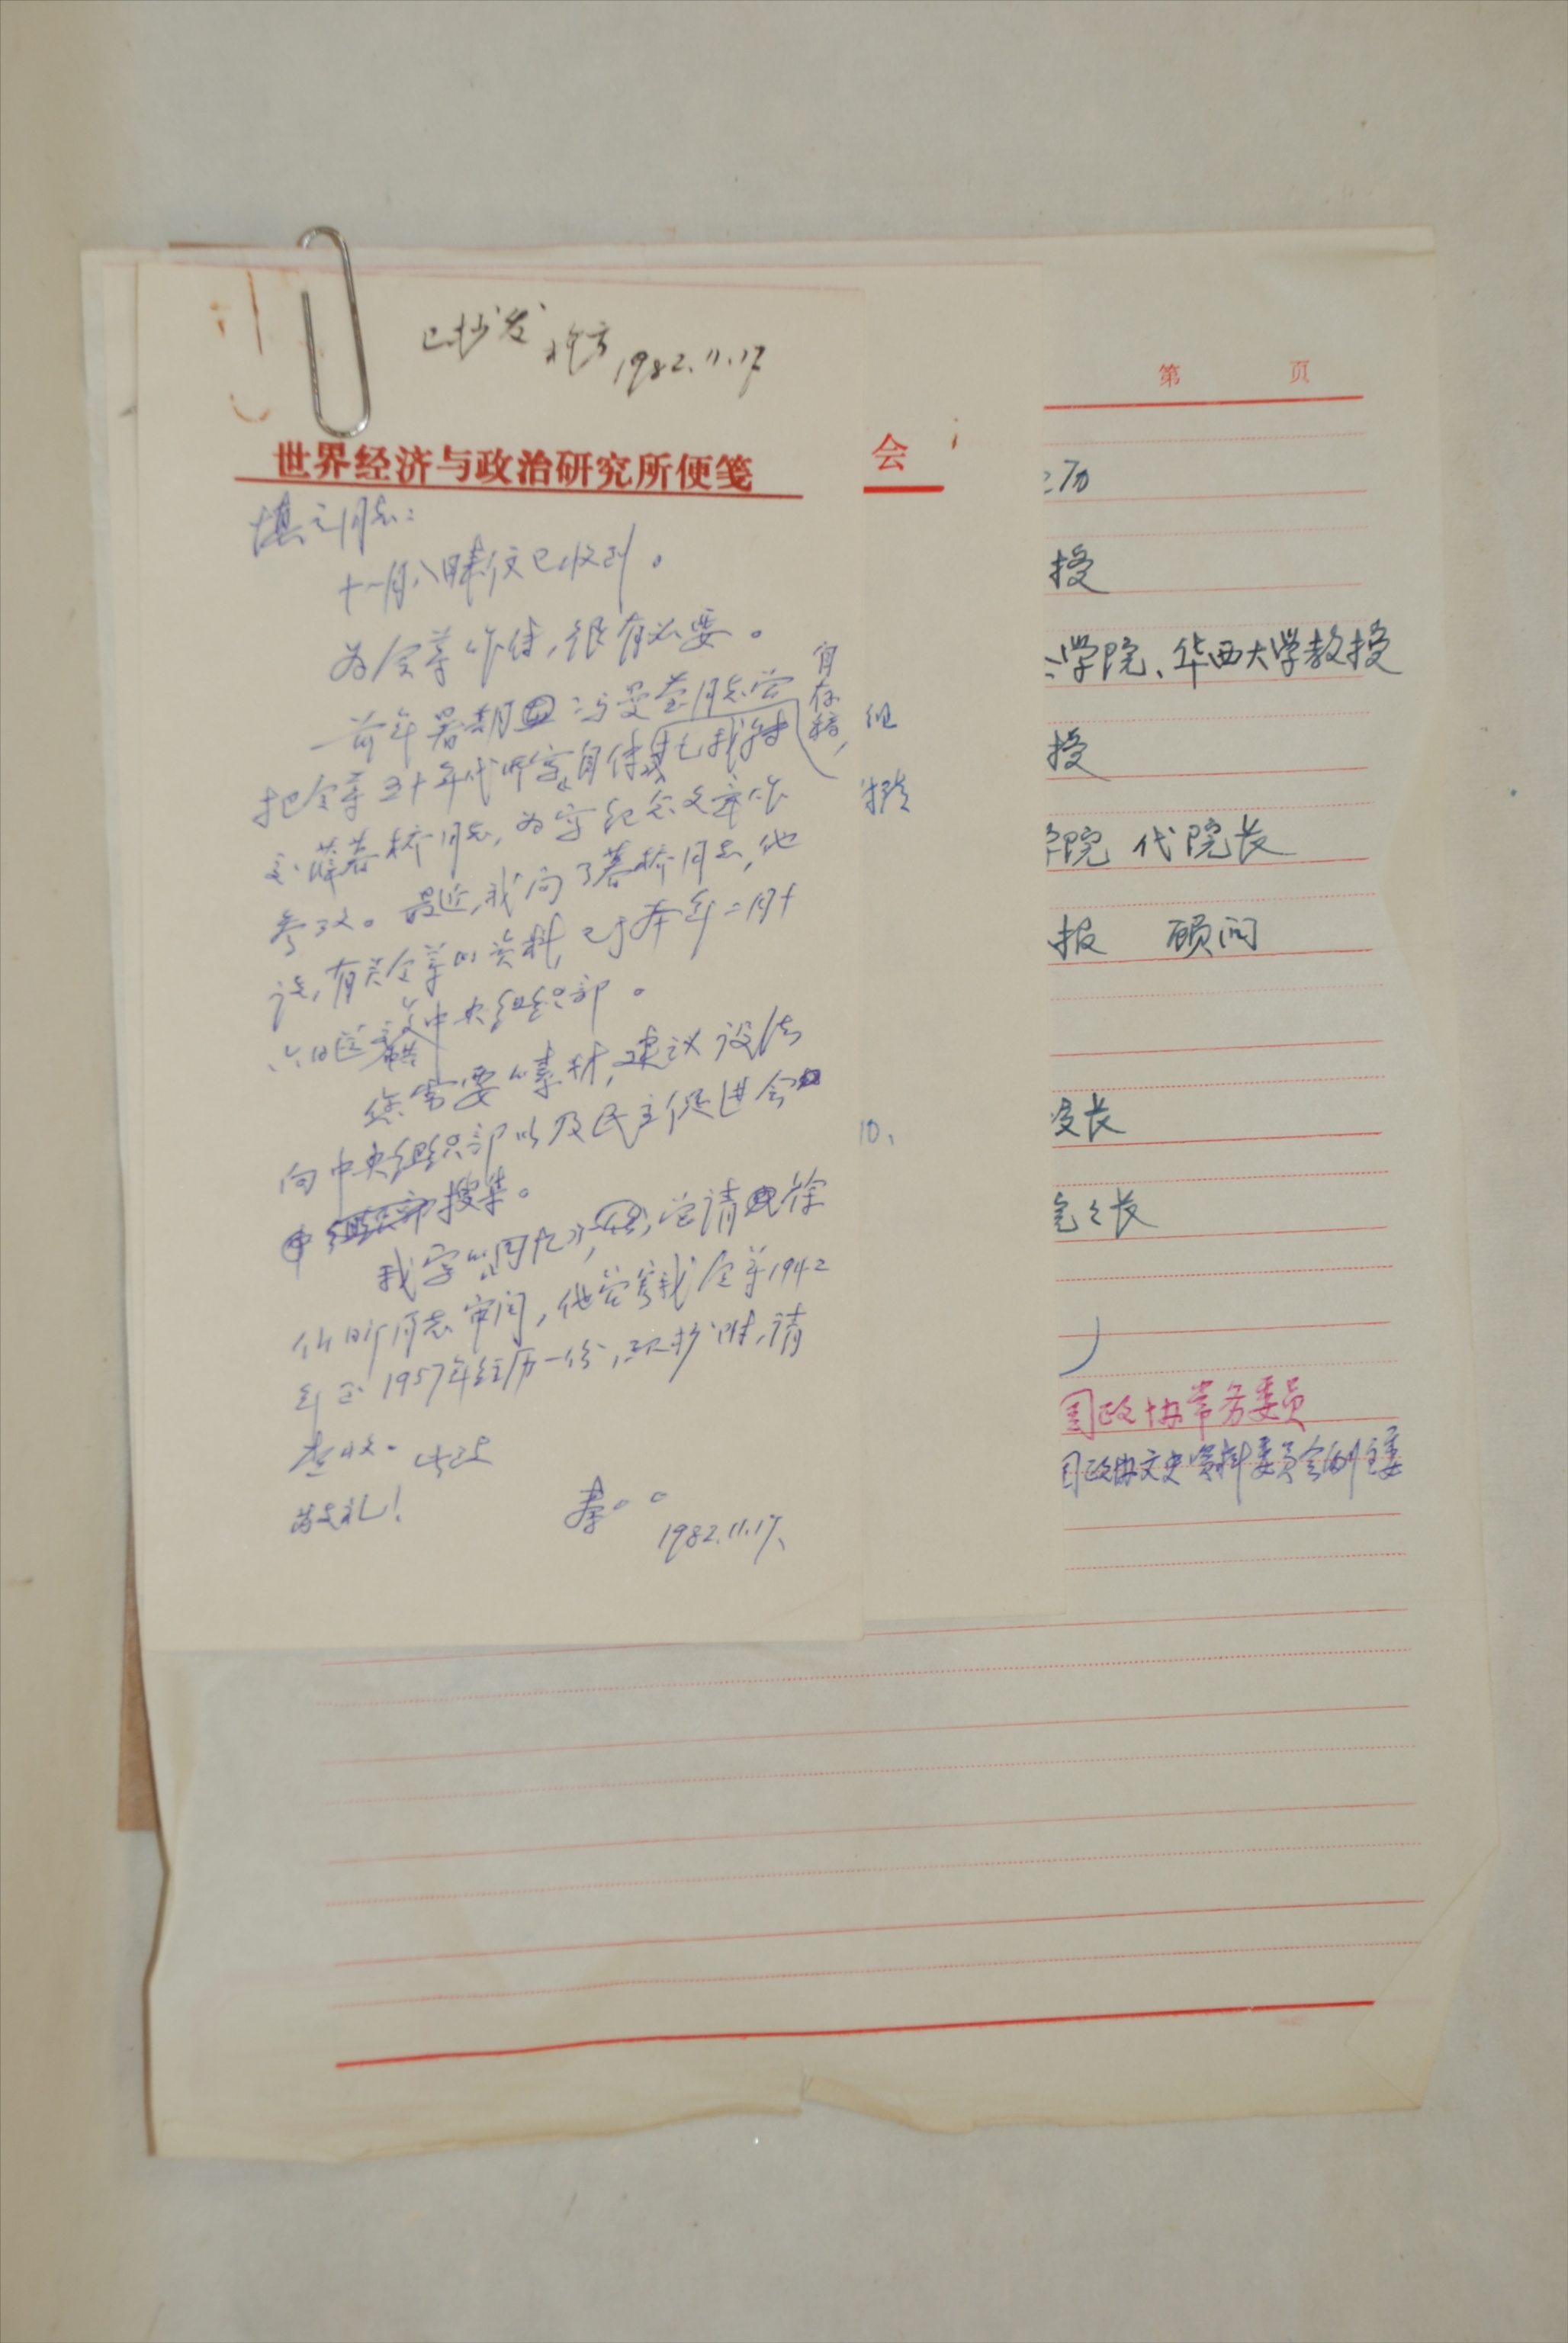 已抄发 1982.11.17
世界经济与政治研究所便笺
填之同志：
十一月八日来信已收到。
为令尊作传，很有必要。
前年暑期冯曼莹同志尝
把令尊五十年代所写自传
自存稿，
交薛暮桥同志，为写纪念文章作
参考。最近，我问了暮桥同志，他
说，有关令尊的资料，已于本年二月十
六日送交中央组织部。
您需要的素材，建议设法
向中央组织部以及民主促进会
搜集。
我写的回忆，尝请徐
伯昕同志审阅，他尝寄我令尊1942
年至1957年经历一份，现抄附，请
查收。此致
敬礼！
秦。。
1982.11.17、
会
但
10、
第 页
历
授
学院、华西大学教授
授
院 代院长
报 顾问
长
长
国政协常务委员
国政协文史资料委员会副主委